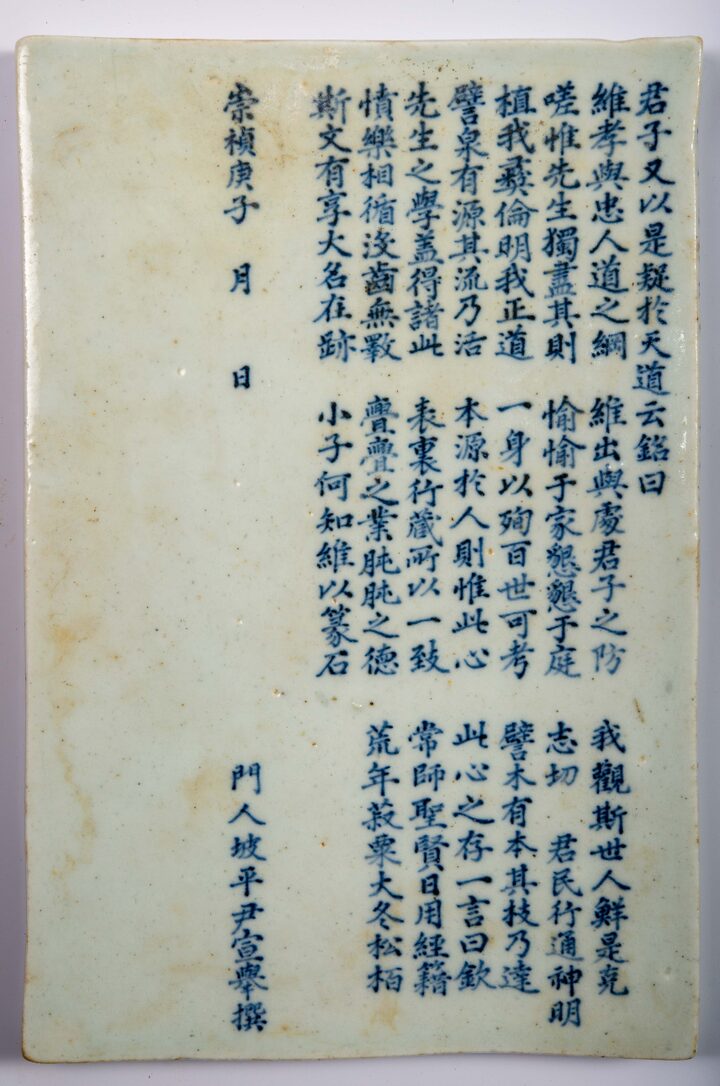 君子又以是疑於天道云銘曰
維孝與忠人道之綱　維出與處君子之防　我觀斯世人鮮是克
嗟惟先生獨盡其則　愉愉于家懇懇于庭　志切　君民行通神明
植我彛倫明我正道　一身以殉百世可考　譬木有本其枝乃達
譬泉有源其流乃活　本源於人則惟此心　此心之存一言曰欽
先生之學盖得諸此　表裏行藏所以一致　常師聖賢日用經籍
憤樂相循沒齒無斁　亹亹之業肫肫之德　荒年菽粟大冬松栢
斯文有享大名在跡　小子何知維以篆石
崇禎庚子　月　日　門人坡平尹宣舉撰